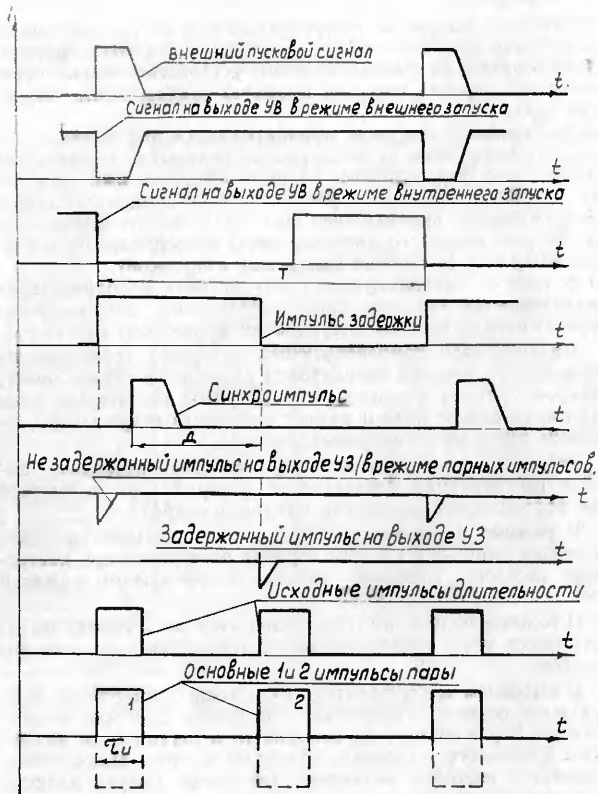 Внешний пусковой сигнал
t
Сигнал на выходе УВ в режиме внешнего запуска
t
Сигнал на выходе УВ в режиме внутреннего запуска
T
t
Импульс задержки
t
Синхроимпульс
t
Д
Не задержанный импульс на выходе УЗ/в режиме парных импульсов,
t
Задержанный импульс на выходе УЗ
t
Исходные импульсы длительности
t
Основные 1 и 2 импульсы пары
1
2
t
τи